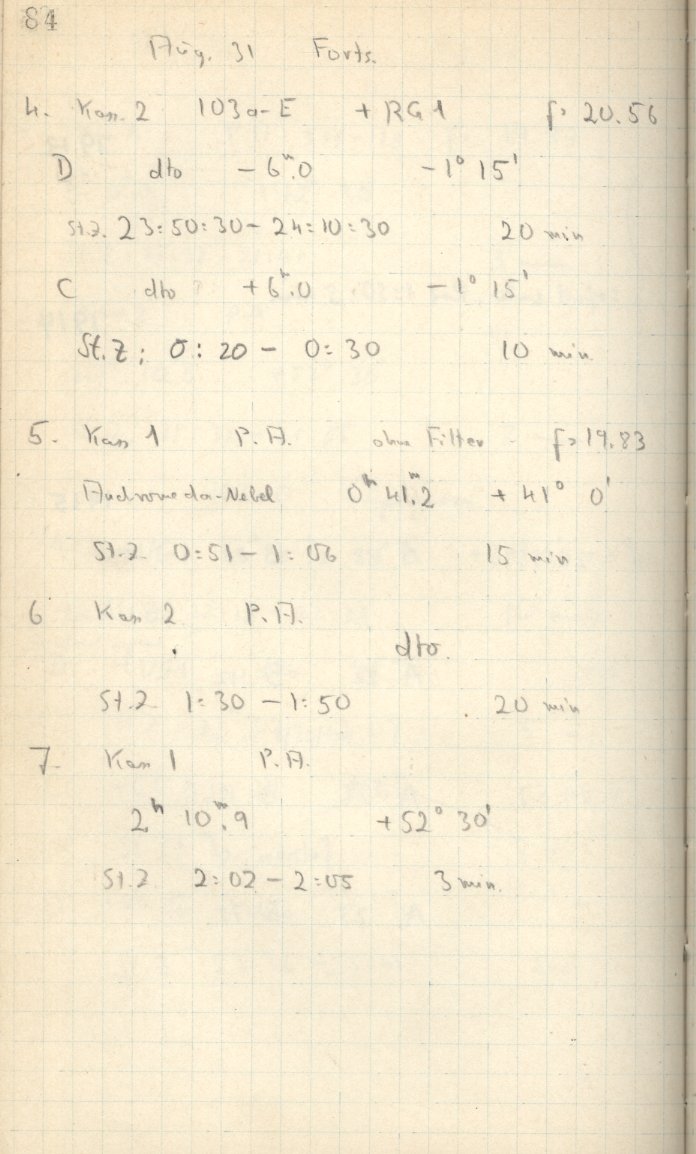 84
Aug. 31 Forts.
4. Kass. 2 103a-E + RG1 f= 20.56
D dto - 6ᵐ.0 - 1° 15'
St.Z. 23:50:30 - 24:10:30 20 min
C dto +6ᵐ.0 - 1° 15'
St.Z: 0:20 - 0:30 10 min
5. Kass 1 P.A. ohne Filter f= 19.83
Andromeda-Nebel 0ʰ 41ᵐ.2 + 41° 0'
St.Z. 0:51 - 1:06 15 min
6 Kass 2 P.A.
dto.
St.Z 1:30 - 1:50 20 min
7. Kass 1 P.A.
2ʰ 10ᵐ.9 +52° 30'
St.Z 2:02 - 2:05 3 min.